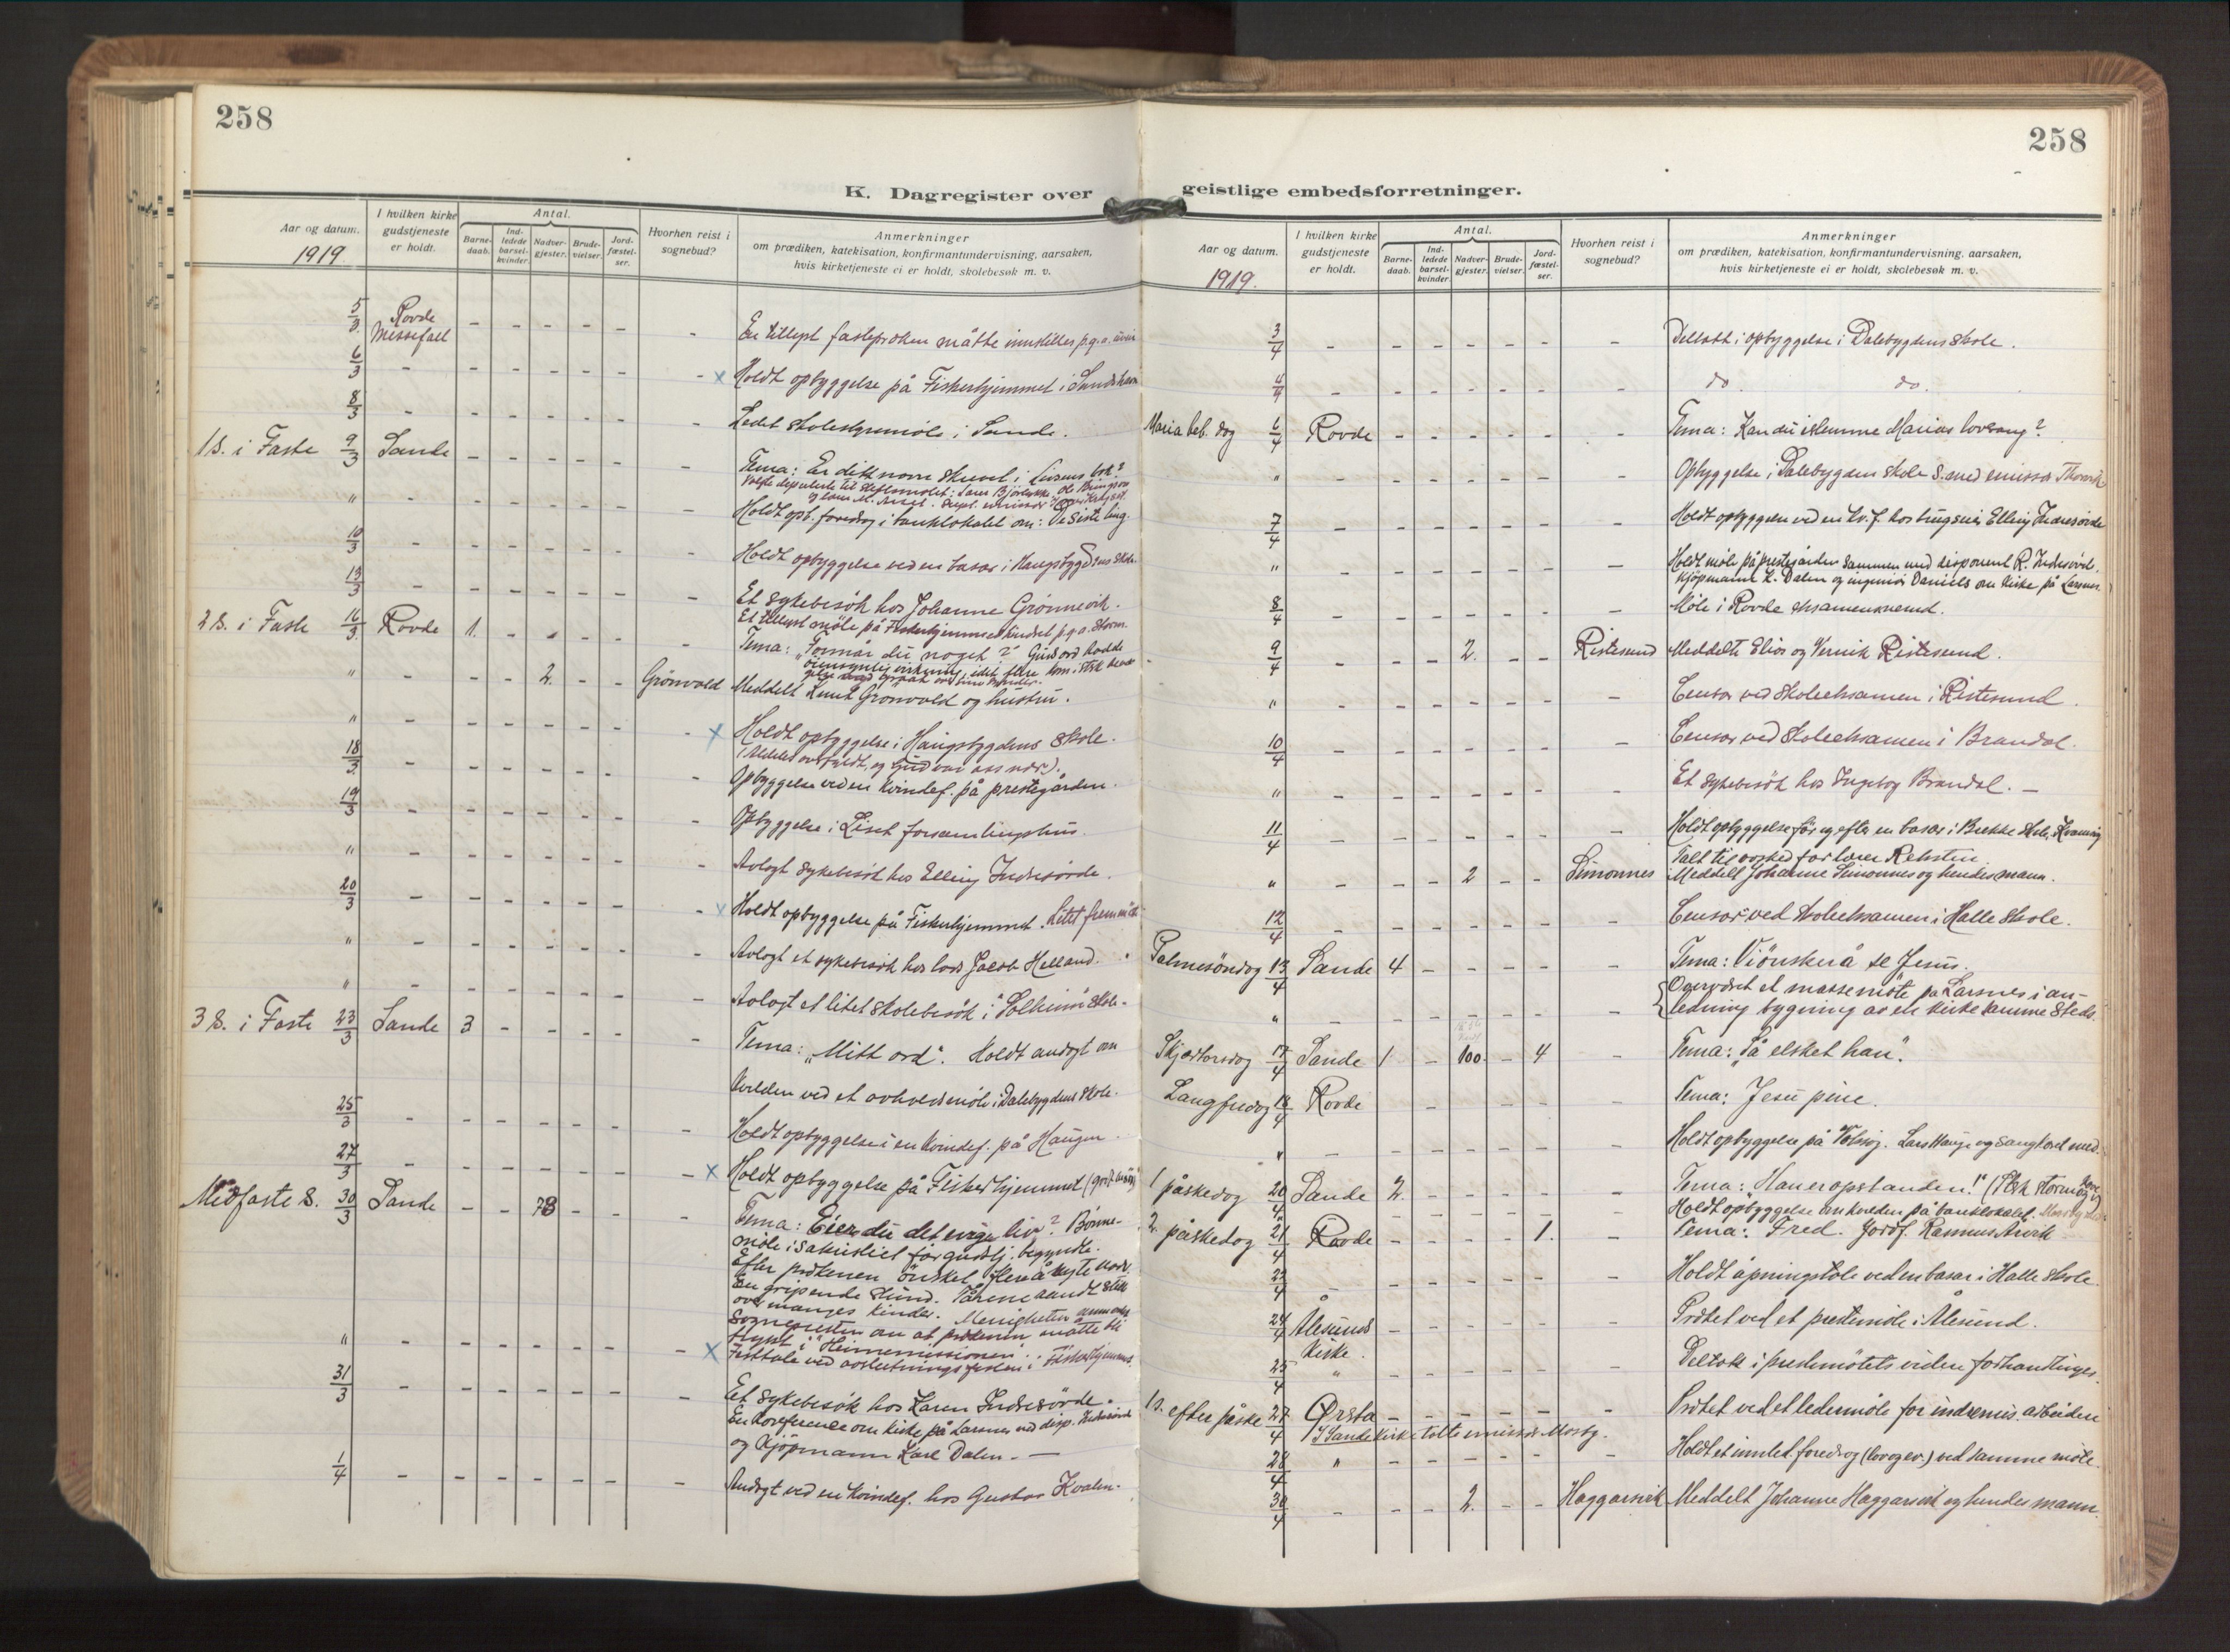 258
K. Dagregister over
Aar og datum.
1919
I hvilken kirke gudstjeneste er holdt.
Antal.
Barne-daab.
Ind-ledede barsel-kvinder.
Nadver-gjester.
Brude-vielser.
Jord-fæstel-ser.
Hvorhen reist i sognebud?
Anmerkninger
om prædiken, katekisation, konfirmantundervisning, aarsaken,
hvis kirketjeneste ei er holdt, skolebesøk m. v.
5/3 Rovde Messefall - - - - - - En tillyst fastepræken måtte innstilles p.g.a.
6/3 - - - - - - - x Holdt opbyggelse på Fiskerhjemmet i Sandshavn
8/3 - - - - - - - Ledet skolestyremöte i Sande.
1 S. i Faste 9/3 Sande - - - - - - Tema: Er ditt navn skrevet i Livsens bok?
" - - - - - - - Holdt opb. foredrag i banklokalet om: De siste ting.
10/3 - - - - - - - Holdt opbyggelse ved en basar i Haugsbygdens skole.
13/3 - - - - - - - Et sykebesök hos Johanne Grönnevik.
Et tillyst möte på Fiskerhjemmet hindret p.g.a. storm.
2 S. i Faste 16/3 Rovde 1. - - - - - Tema: "Formår du noget?" Guds ord hadde
" - - - 2. - - Grönvold Meddelt Knut Grönvold og hustru.
" - - - - - - - x Holdt opbyggelse i Haugsbygdens skole.
18/3 - - - - - - - Opbyggelse ved en kvindef. på prestegården.
19/3 - - - - - - - Opbyggelse i Liset forsamlingshus.
" - - - - - - - Avlagt sykebesök hos Elling Indresövde.
20/3 - - - - - - - x Holdt opbyggelse på Fiskerhjemmet. Litet fremmöte
" - - - - - - - Avlagt et sykebesök hos lods Jacob Helland.
" - - - - - - - Avlagt et litet skolebesök i Solheim skole.
3 S. i Faste 23/3 Sande 3 - - - - - Tema: "Mitt ord". Holdt andagt om
kvelden ved et avholdsmöte i Dalebygdens skole.
25/3 - - - - - - - Holdt opbyggelse i en kvindef. på Haugen.
27/3 - - - - - - - x Holdt opbyggelse på Fiskerhjemmet
Midfaste S. 30/3 Sande - - 78 - - - Tema: Eier du det evige liv? Bönne-
möte i sakristiet för gudstj. begyndte.
Efter prækenen önsket flere å nyte nadv.
En gripende stund. Tårene randt stille
over manges kinder. Menigheten anmodet
Sognepresten om at prækenen måtte bli
trykt i "Heimemissionen".
" - - - - - - - x Festtale ved avslutningsfesten i Fiskerhjemmet.
31/3 - - - - - - - Et sykebesök hos Karen Indresövde.
En konferense om kirke på Larsnes med disp. Indresövde
og Kjöpmann Karl Dalen. -
1/4 - - - - - - - Andagt ved en kvindef. hos Gustav Kvalen.
258
geistlige embedsforretninger.
Aar og datum.
1919.
I hvilken kirke gudstjeneste er holdt.
Antal.
Barne-daab.
Ind-ledede barsel-kvinder.
Nadver-gjester.
Brude-vielser.
Jord-fæstel-ser.
Hvorhen reist i sognebud?
Anmerkninger
om prædiken, katekisation, konfirmantundervisning, aarsaken,
hvis kirketjeneste ei er holdt, skolebesøk m. v.
3/4 - - - - - - - Deltatt i opbyggelse i Dalebygdens skole.
4/4 - - - - - - - do. do.
Maria beb. dag 6/4 Rovde - - - - - - Tema: Kan du istemme Marias lovsang?
" - Opbyggelse i Dalebygden skole s. med emissær
7/4 - - - - - - - Holdt opbyggelse ved en kv.f. hos brugseier Elling Indresövde
" - - - - - - - Holdt möte på prestegården sammen med disponent R. Indresövde,
kjöpmann K. Dalen og ingeniör Daniels om kirke på Larsnes.
8/4 - - - - - - - Möte i Rovde eksamensnemd.
9/4 - - - 2. - - Ristesund Meddelte Elias og Vernik Ristesund.
" - - - - - - - Censor ved skoleeksamen i Ristesund.
10/4 - - - - - - - Censor ved skoleeksamen i Brandal.
" - - - - - - - Et sykebesök hos Ingeborg Brandal. -
11/4 - - - - - - - Holdt opbyggelse för og efter en basar i Brekke skole,
Talt til avsked for lærer Reksten.
" - - - 2 - - Simonnes Meddelt Johanne Simonnes og hendes mann.
12/4 - - - - - - - Censor ved skoleeksamen i Halle skole.
Palmesöndag 13/4 Sande 4 - - - - - Tema: Vi önsker å se Jesus.
" - - - - - - - Overværet et massemöte på Larsnes i an-
ledning bygning av en kirke samme steds.
Skjærtorsdag 17/4 Sande 1 - 100. - 4 - Tema: "Så elsket han".
Langfredag 18/4 Rovde - - - - - Tema: Jesu pine.
" - - - - - - - Holdt opbyggelse på Volsvig. Lars Hauge og sangkoret med.
1 påskedag 20/4 Sande 2. - - - - - Tema: "Han er opstanden!"
- - - - - - Holdt opbyggelse om kvelden på banklokalet.
2. påskedag 21/4 Rovde - - - - 1. - Tema: Fred. Jordf. Rasmus Årvik
22/4 - - - - - - - Holdt åpningstale ved en basar i Halle skole
24/4 Ålesunds kirke - - - - - - Præket ved et prestemöte i Ålesund.
25/4 " - - - - - - Deltok i prestemötets videre forhandlinger.
1 S. efter påske 27/4 Örsta - - - - - - Præket ved et ledermöte for indremis. arbeiden
I Sande kirke talte emissær Mosby.
28/4 " - - - - - - Holdt et innled. foredrag (lov og ev.) ved samme möte.
30/4 - - - 2. - - Haggarsvik Meddelt Johanne Haggarsvik og hendes mann.